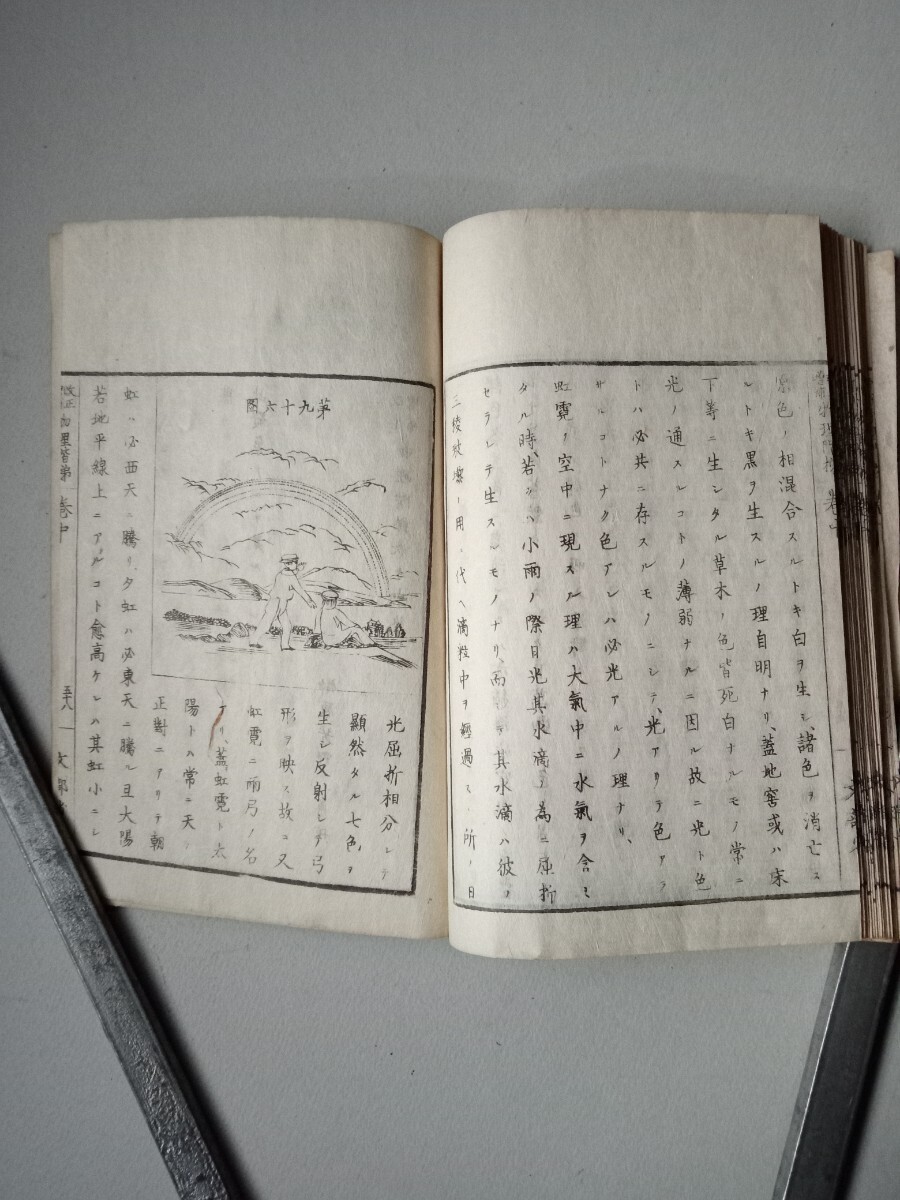 原色ノ相混合スルトキ白ヲ生シ、諸色ヲ消亡ス
ルトキ黒ヲ生スルノ理自明ナリ、蓋地窖或ハ床
下等ニ生シタル草木ノ色皆死白ナルモノ常ニ
光ノ通スルコトノ薄弱ナルニ因ル故ニ光ト色
トハ必共ニ存スルモノニシテ、光アリテ色アラ
サルコトナク色アレハ必光アルノ理ナリ、
虹霓ノ空中ニ現スル理ハ大氣中ニ水氣ヲ含ミ
タル時、若シハ小雨ノ際日光其水滴ノ為ニ屈折
セラレテ生スルモノナリ、而シテ其水滴ハ彼ノ
三稜玻瓈ノ用ニ代ヘ滴粒中ヲ經過スル所ノ日
第九十六圖
光屈折相分レテ
顯然タル七色ヲ
生シ反射シテ弓
形ヲ映ス故ニ又
虹霓ニ雨弓ノ名
アリ、蓋虹霓ト太
陽トハ常ニ天ノ
正對ニアリテ朝
虹ハ必西天ニ騰リ、夕虹ハ必東天ニ騰ル且大陽
若地平線上ニアルコト愈高ケレハ其虹小ニシ
改正物理階梯 卷中
五十八
文部省